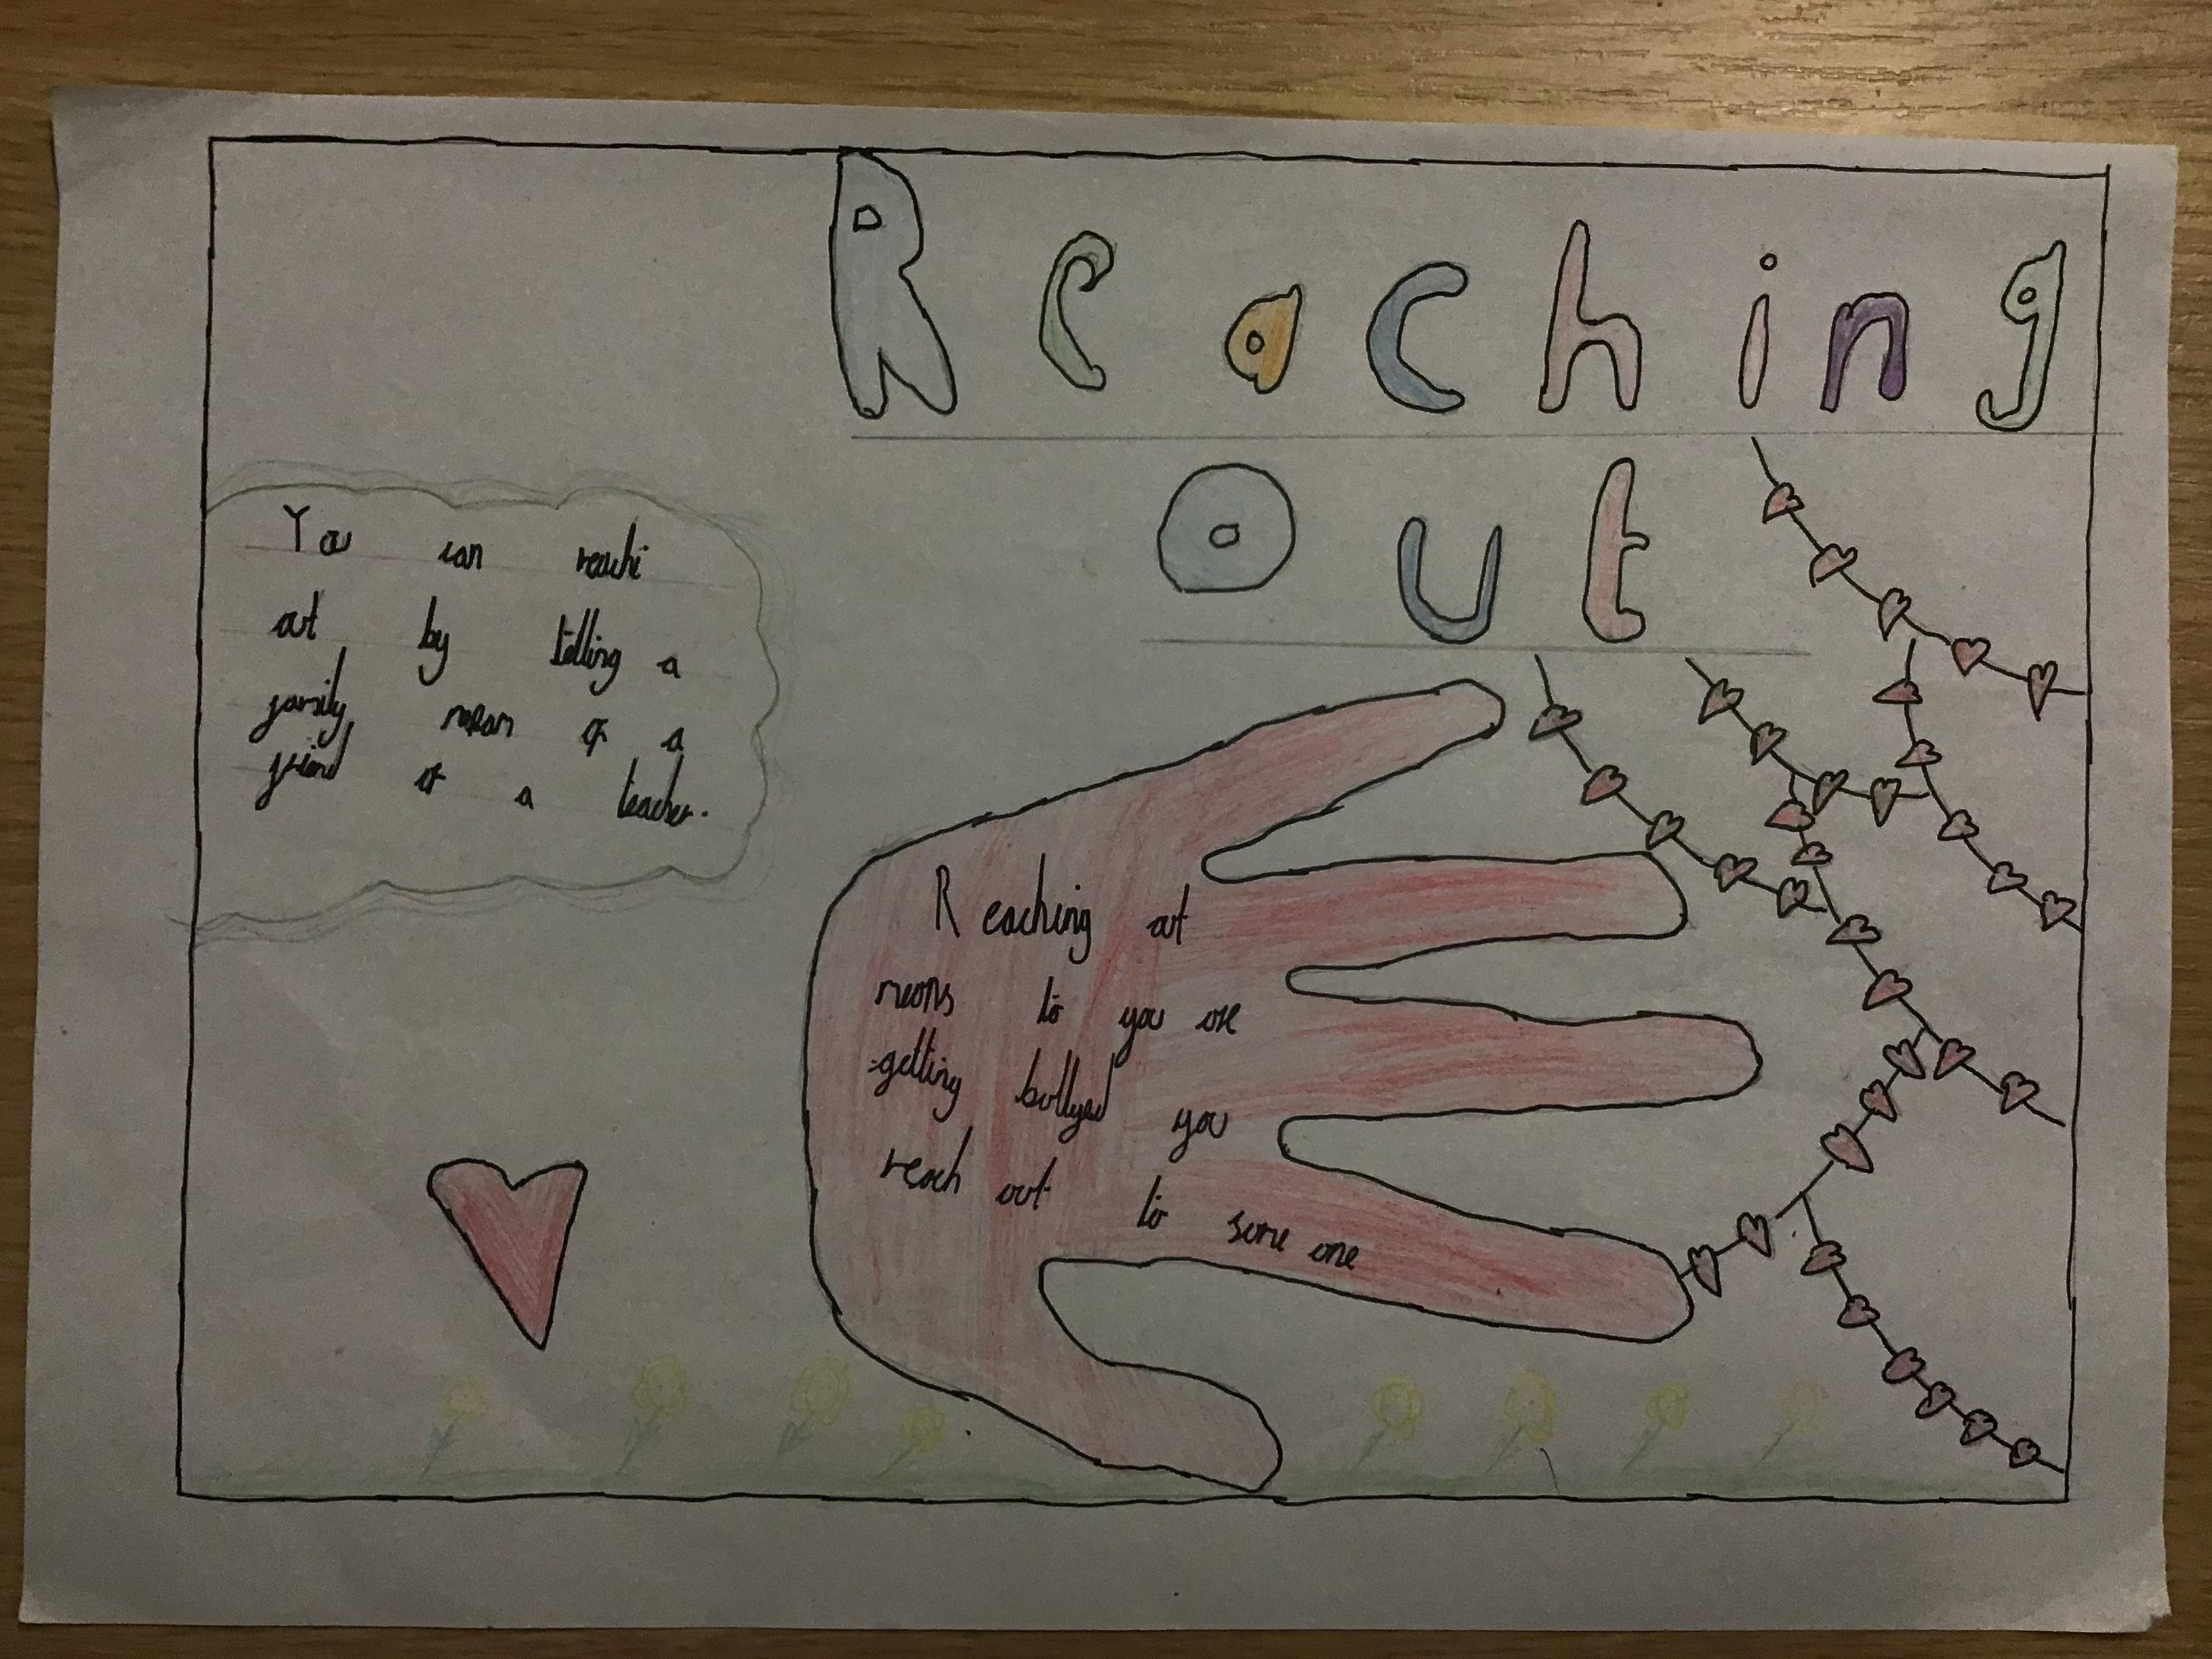 Reaching
Out
You can reach
out by telling a
family
friend or a teacher.
Reaching out
means to you are
getting bullyed you
reach out to some one